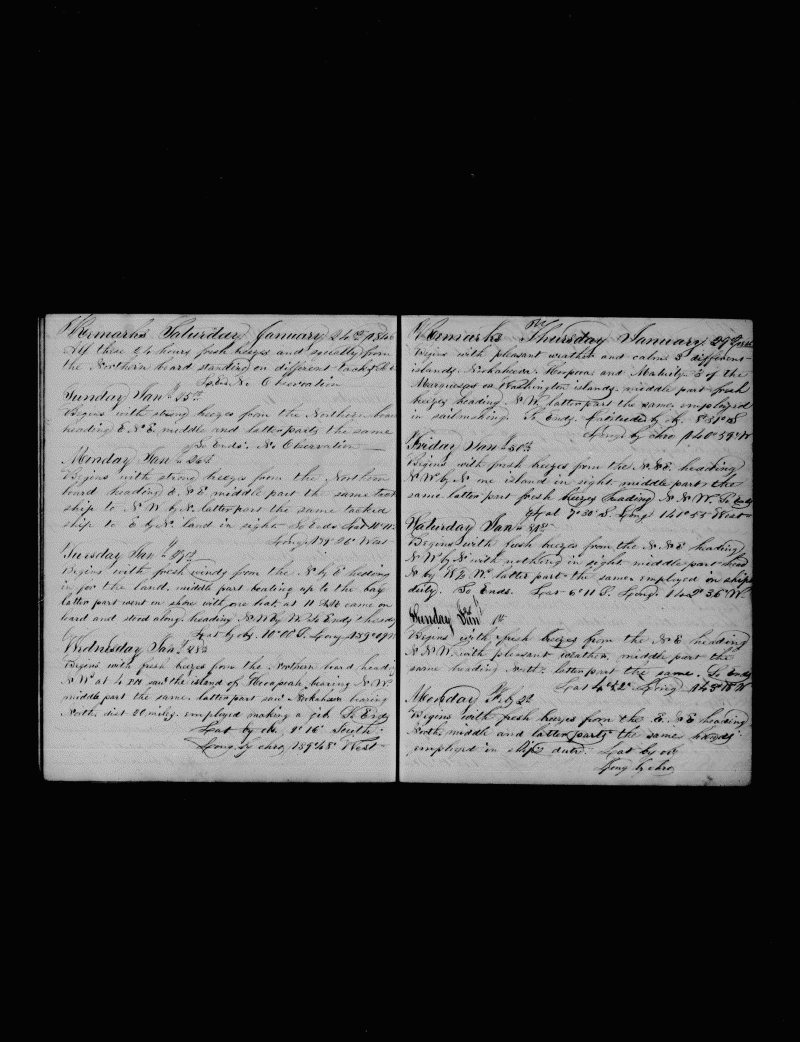 Remarks Saturday January 24th 1846
All these 24 hours fresh breezes and squally from
the Northern board standing on different tacks
So Ends No Observation
Sunday Jan 25th
Begins with strong breezes from the Northern board
heading E N E middle and latter parts the same
So Ends No Observation
Monday Jan 26th
Begins with strong breezes from the Northern
board heading E N E middle part the same tacked
ship to N W by N latter part the same tacked
ship to E by N land in sight So Ends Lat 10° 11
Long 138° 26 West
Tuesday Jan 27th
Begins with fresh winds from the N by E heading
in for the land middle part beating up to the bay
latter part went on shore with one boat at 11 AM came on
board and stood along heading N W by W So Ends these
Lat by ob. 10° 00 S. Long 139° 09 W
Wednesday Jan 28th
Begins with fresh breezes from the Northern board heading
N W at 4 PM saw the island of bearing N W
middle part the same latter part saw bearing
North dist 20 miles employed making a jib So Ends
Lat by ob 9° 16 South
Long by chro 139° 48 West
Remarks Thursday January 29
Begins with pleasant weather and calms 3 different
islands and 3 of the
Marquesas or Washington islands middle part fresh
breezes heading N W latter part the same employed
in sailmaking So Ends Latitude by ob. 8° 31 S
Long by chro 140° 59 W
Friday Jan 30th
Begins with fresh breezes from the N N E heading
N W by N one island in sight middle part the
same latter part fresh breezes heading N N W So Ends
Lat 7° 30 S. Long 141° 55 West
Saturday Jan 31st
Begins with fresh breezes from the N N E heading
N W by N with nothing in sight middle part head
N by W ½ W latter part the same employed in ships
duty. So Ends. Lat 6° 11 S. Long 142° 36 W.
Sunday 1st
Begins with fresh breezes from the N E heading
N N W with pleasant weather middle part the
same heading North latter part the same. So Ends
Lat 4° 22 Long 143° 18 W
Monday Feb 2d
Begins with fresh breezes from the E N E heading
North middle and latter parts the same hands
employed in ships duty. Lat by ob
Long by chro